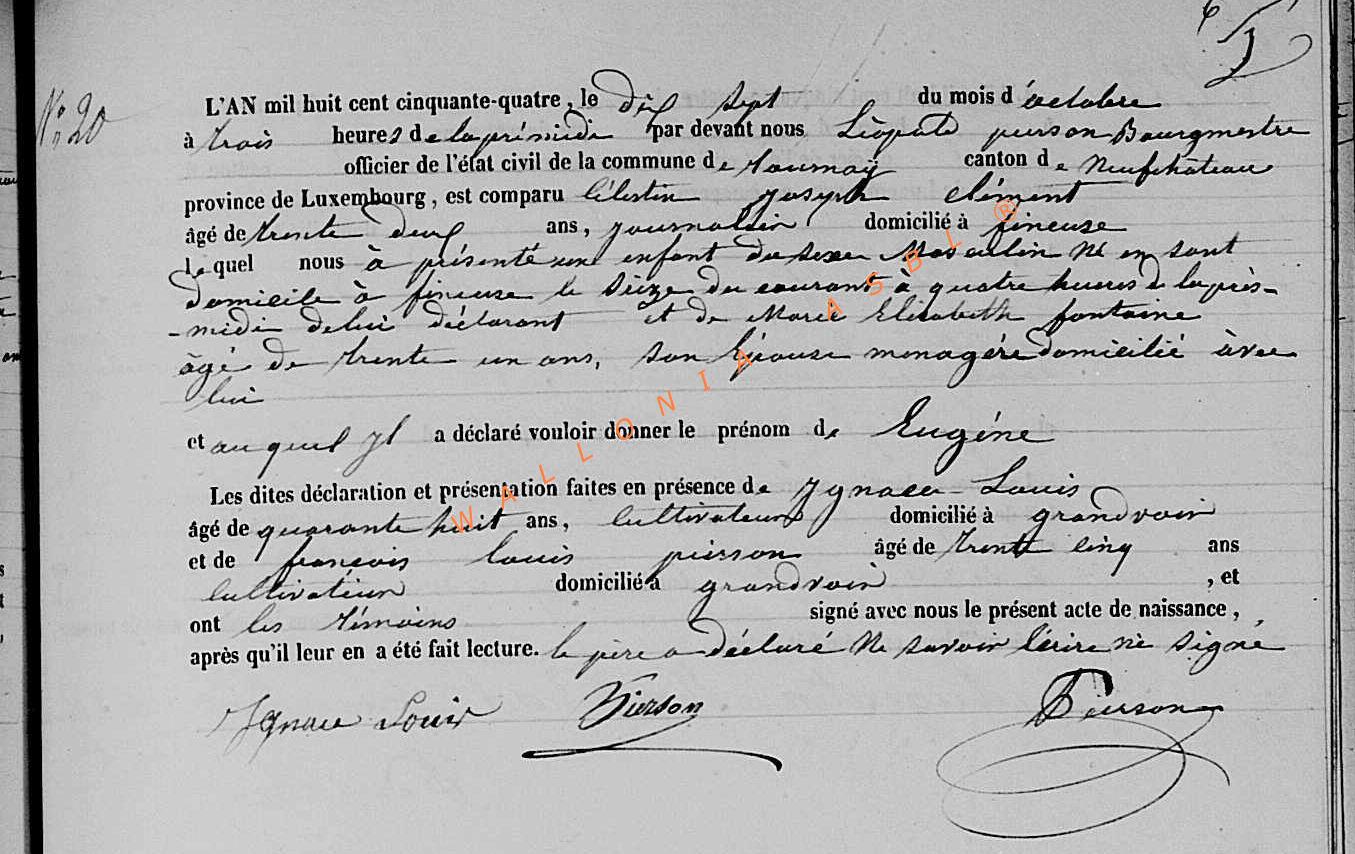 N° 20
L'AN mil huit cent cinquante-quatre, le dix sept du mois d'octobre
à trois heures de laprésmidi par devant nous Léopold pierson Bourgmestre
officier de l'état civil de la commune de tournaÿ canton de Neufchâteau
province de Luxembourg, est comparu Célestin joseph Clément
âgé de trente deux ans, journalier domicilié à fineuse
lequel nous à présenté une enfant du sexe Masculin né en sont
domicile à fineuse le Seize du courant à quatre heures de laprès-
-midi delui déclarant et de Marie Elisabeth fontaine
âgé de trente un ans, son Épouse menagére domicilié àvec
lui
et auquel jl a déclaré vouloir donner le prénom de Eugéne
Les dites déclaration et présentation faites en présence de Jgnace Louis
âgé de quarante huit ans, Cultivateur domicilié à grandvoir
et de françois louis pierson âgé de trente cinq ans
Cultivateur domicilié à grandvoir, et
ont les témoins signé avec nous le présent acte de naissance,
après qu'il leur en a été fait lecture. le père a déclaré Ne savoir Écrire ni Signé
Jgnace Louis Pierson Pierson
WALLONIA ASBL ®